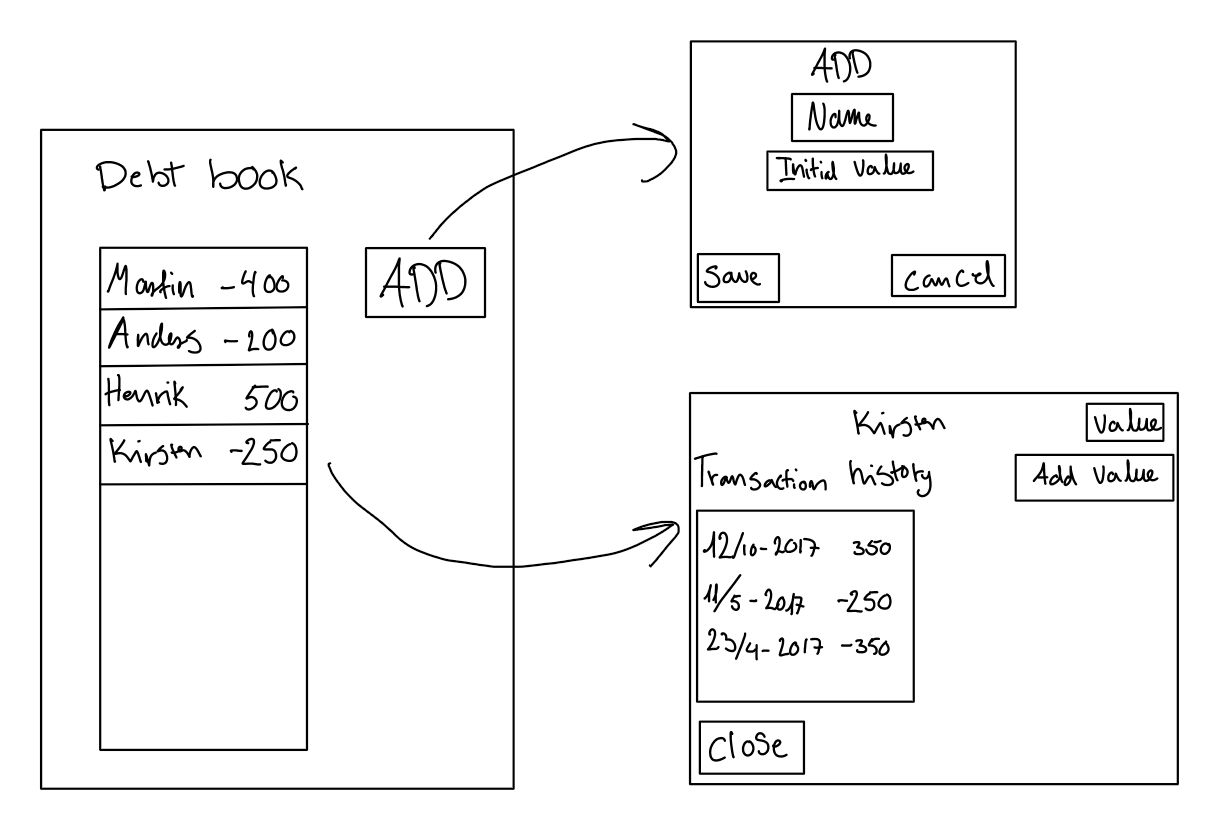 Debt book
Martin -400
Anders -200
Henrik 500
Kirsten -250
ADD
ADD
Name
Initial Value
Save
Cancel
Kirsten
Value
Transaction history
Add Value
12/10-2017 350
11/5-2017 -250
23/4-2017 -350
Close